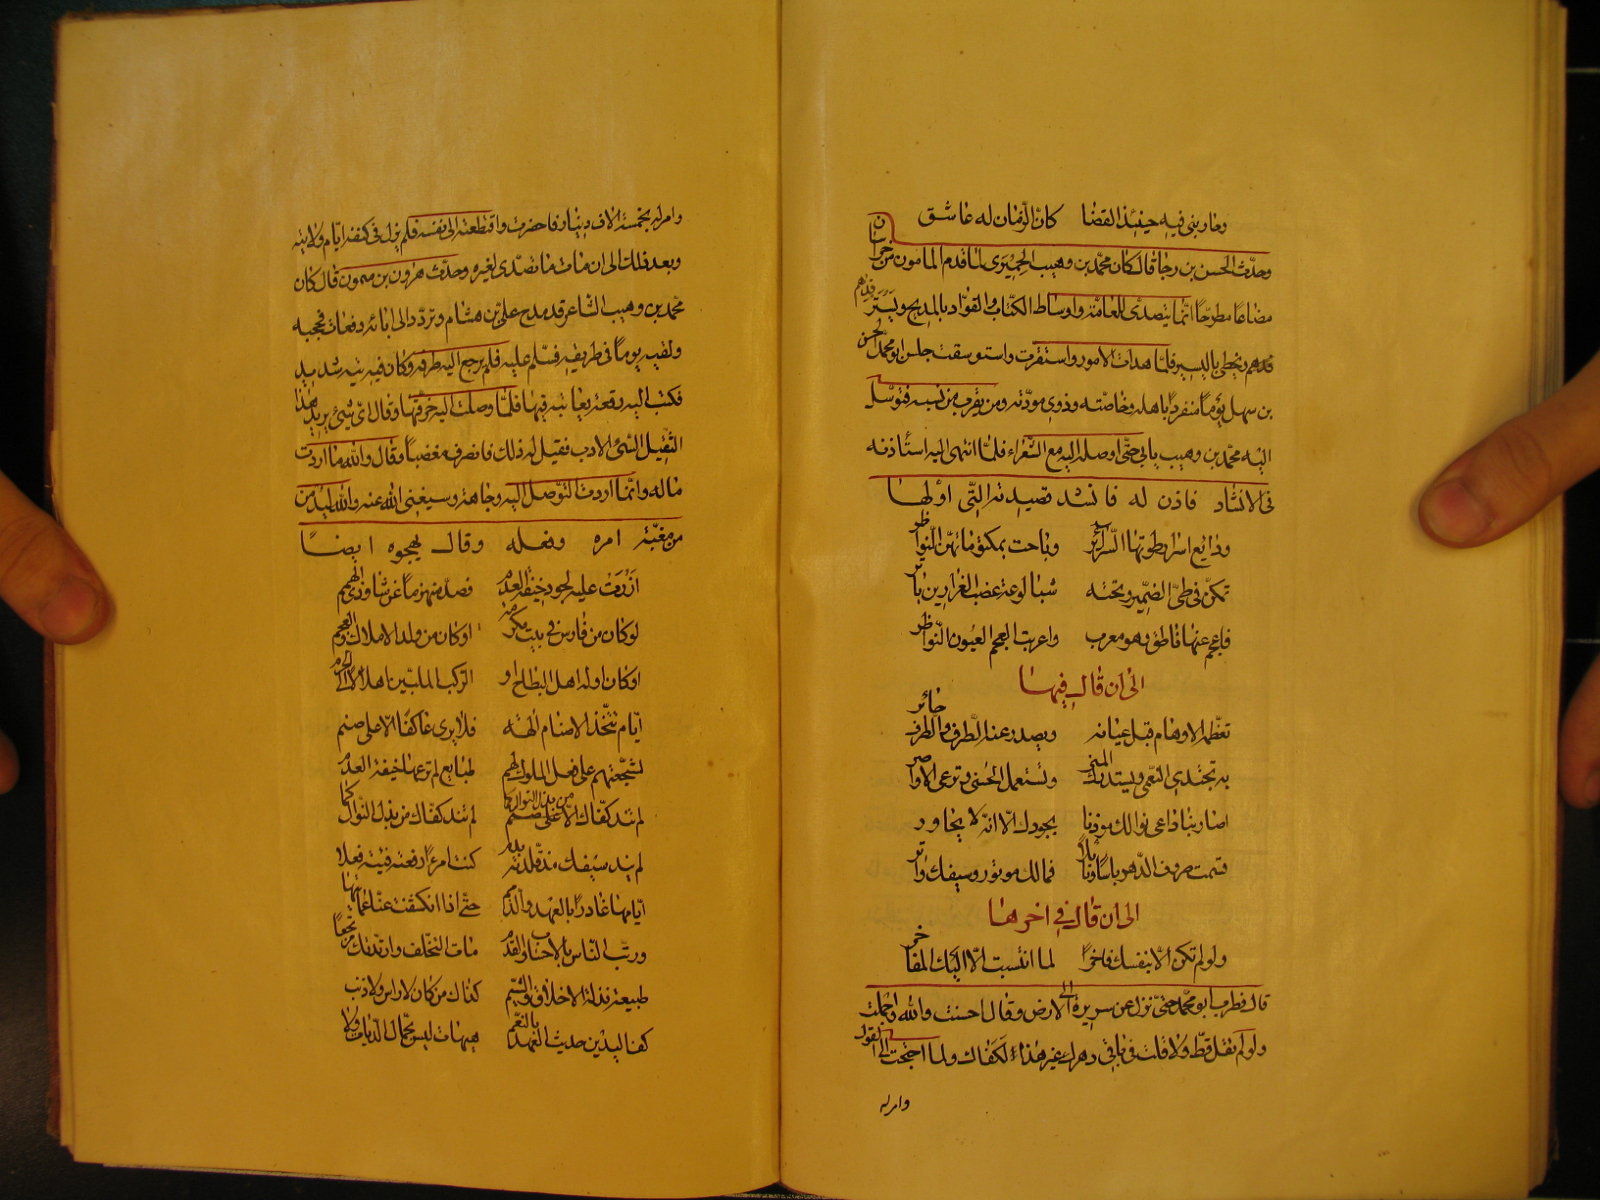 وعاربني فيه حينئذ القضا كان الزمان له عاشق
وحدّث الحسن بن رجا قال كان محمّد بن وهيب الحميري لما قدم المامون من خراسان
مضاعًا مطرحًا انّما يتصدى للعامّة واوساط الكتّاب والقوّاد بالمديح ويسترفدهم
فدهم ويحظى باليسير فلمّا هدات الامور واستقرت واستوسقت جلس ابو محمّد الحسن
بن سهل يومًا منفردًا باهله وخاصّته وذوى مودّته ومن يقرب من نسبه فتوسّل
اليه محمّد بن وهيب بابي حتّى اوصله اليه مع الشّعراء فلمّا انتهى اليه استاذنه
فى الانشاد فاذن له فانشد قصيدته الّتى اوّلها
ودايع اسرار طوتها السّرائر وباحت بمكتوماتهنّ النّواظر
تكنّ فى طىّ الضّمير وتحته شبا لوعة عضب الغرارين باتر
فاعجم عنها ناطق وهو معرب واعربت العجم العيون النّواظر
الى ان قال فيها
تعظّمه الاوهام قبل عيانه ويصدر عنه الطّرف والطّرف حائر
به تجتدى النّعمى ويستدرك المنى وتستعمل الحسنى وترعى الاواصر
اصار بنا داعى نوالك موذنا بجودك الّا انّه لا يحاور
قسمت صروف الدّهر باسًا ونائلًا فمالك موتور وسيفك واتر
الى ان قال فى اخرها
ولو لم تكن الّا بنفسك فاخرًا لما انتسبت الّا اليك المفاخر
قال فطرب ابو محمّد حتّى نزل عن سريره الى الارض وقال احسنت والله واجملت
ولو لم تقل قطّ ولا قلت فى باقى دهرك غير هذا لكفاك ولما احتجت الى القول
وامر له
وامر له بخمسة الاف دينار فاحضرت واقتطعته الى نفسه فلم يزل فى كنفه ايّام ولايته
وبعد ذلك الى ان مات ما تصدّى لغيره وحدّث هرون بن ميمون قال كان
محمّد بن وهيب الشاعر قد مدح علىّ بن هشام وتردّد الى بابه دفعات فحجبه
ولقيه يومًا فى طريقه فسّلم عليه فلم يرجع اليه طرفه وكان فيه تيه شديد
فكتب اليه رقعة يعاتبه فيها فلمّا وصلت اليه خرقها وقال اىّ شئ يريد هذا
الثّقيل السّئ الادب فقيل له ذلك فانصرف مغضبًا وقال والله ما اردت
ماله وانّما اردت التّوصل اليه وجاهه وسيغنى الله عنه والله ليذمن
من مغبّة امره وفعله وقال يهجوه ايضًا
ازرت عليه لجود خيفة العدم فصدّ منهزمًا عن شاو ذى الهمم
لو كان من فارس فى بيت مكرمة او كان من ولد الاملاك والعجم
او كان اوله اهل البطاح او الركب الملبّين اهلالا الى الحرم
ايّام تتّخذ الاصنام الهة فلا يرى عاكفًا الّا على صنم
لشجّعتهم على فعل الملوك لهم طبايع لم ترعها خيفة العدم
لم تند كفّاك من بذل النّوال كما لم يند سيفك مذ قلّدته بدم
كنت امرءًا رفعته فتنة فعلا ايّامها غادرًا بالعهد والذّمم
حتّى اذا انكشفت عنّا عمايتها ورتّب النّاس بالاحساب والقدم
مات التخلّف وارتدّتك مرتجعًا طبيعة نذلة الاخلاق والشّيم
كذاك من كان لا راس ولا ذنب كفّ اليدين حديث العهد بالنّعم
هيهات ليس بحمّال الدّيات ولا